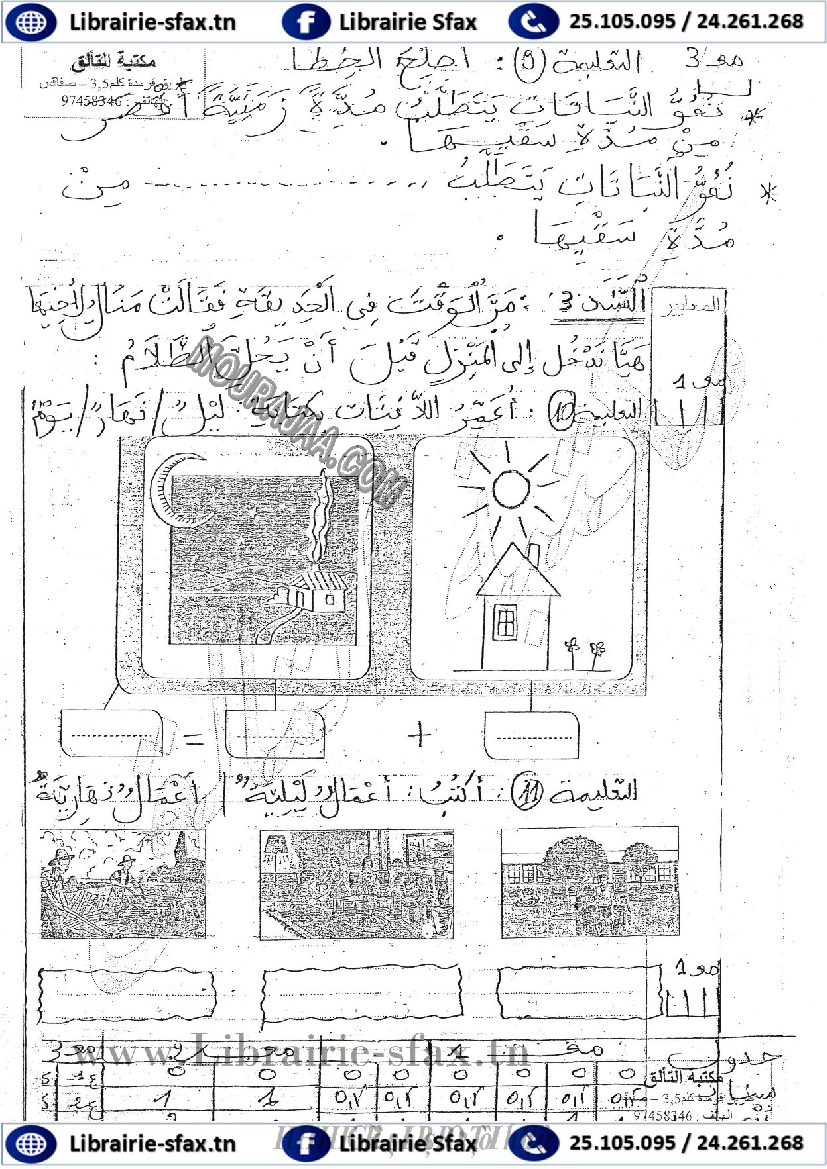 Librairie-sfax.tn Librairie Sfax 25.105.095 / 24.261.268
مكتبة التألق
97458346
مع 3 التعليمة (9): أصلح الخطأ
* نُمُوُّ النَّبَاتَاتِ يَتَطَلَّبُ مُدَّةً زَمَنِيَّةً أَقْصَرَ
مِنْ مُدَّةِ سَقْيِهَا.
* نُمُوُّ النَّبَاتَاتِ يَتَطَلَّبُ .................. مِنْ
مُدَّةِ سَقْيِهَا.
المعايير
السَّنَد 3: مَرَّ الْوَقْتُ فِي الْحَدِيقَةِ فَقَالَتْ مَنَالُ لِأَخِيهَا
هَيَّا نَدْخُل إِلَى الْمَنْزِلِ قَبْلَ أَنْ يَحُلَّ الظَّلَامُ:
مع 1
التعليمة (10): أُعَمِّرُ اللَّافِتَاتِ بِكِتَابَةِ: لَيْلٌ / نَهَارٌ / يَوْمٌ
MOURAJAA.COM
............ = ............ + ............
التعليمة (11): أَكْتُبُ: أَعْمَالٌ لَيْلِيَّةٌ / أَعْمَالٌ نَهَارِيَّةٌ
مع 1
www.Librairie-sfax.tn
جدول مع 1 مع 3
مكتبة التألق
0 0 0 0 0 0 0 0
1 1 0,2 0,2 0,2 0,2 0,2 0,2
97458346
Librairie-sfax.tn Librairie Sfax 25.105.095 / 24.261.268